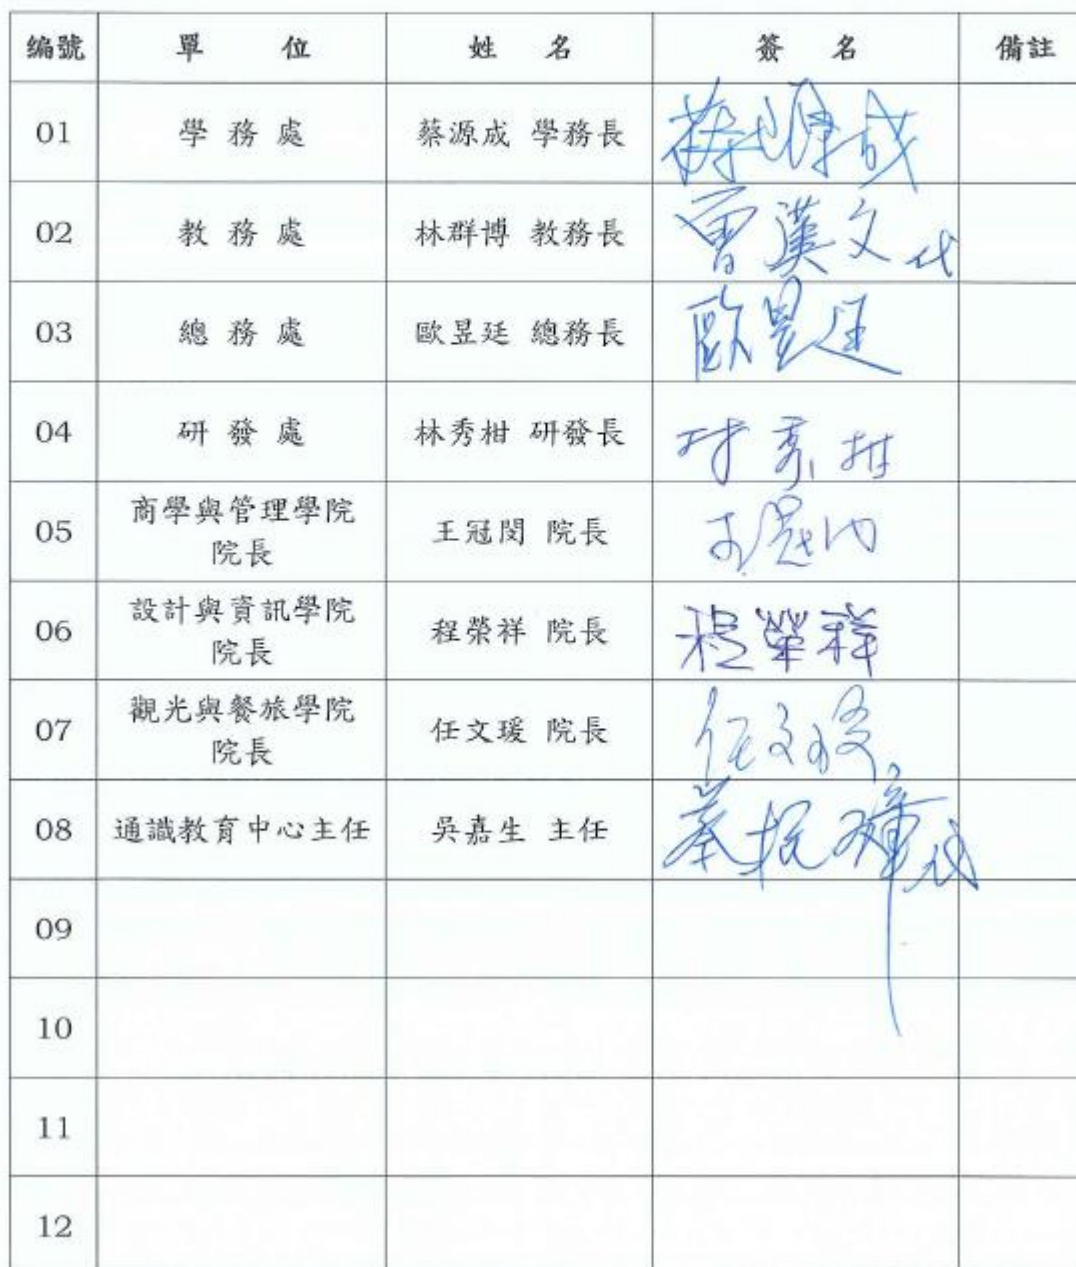 編號 單 位 姓 名 簽 名 備註
01 學 務 處 蔡源成 學務長 蔡源成
02 教 務 處 林群博 教務長 曾漢文代
03 總 務 處 歐昱廷 總務長 歐昱廷
04 研 發 處 林秀柑 研發長 林秀柑
05 商學與管理學院
院長 王冠閔 院長 王冠閔
06 設計與資訊學院
院長 程榮祥 院長 程榮祥
07 觀光與餐旅學院
院長 任文瑗 院長 任文瑗
08 通識教育中心主任 吳嘉生 主任 代
09
10
11
12